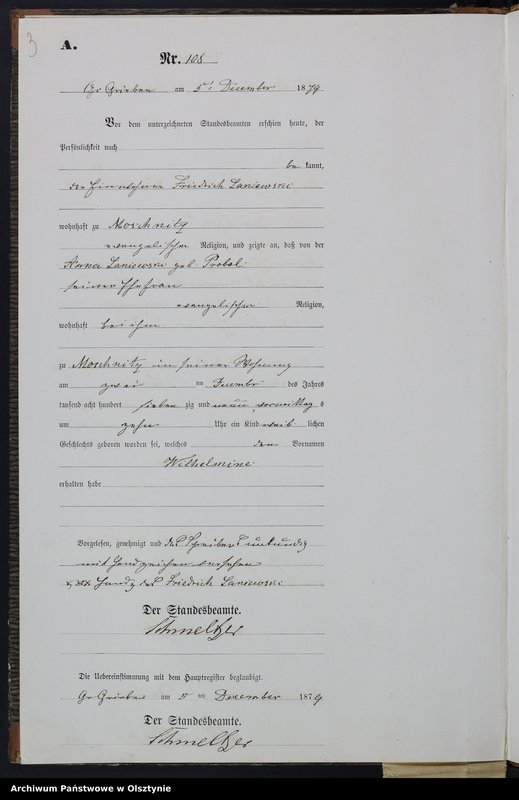 3
A.
Nr. 108
Gr Grieben am 5t December 1879
Vor dem unterzeichneten Standesbeamten erschien heute, der
Persönlichkeit nach
be kannt,
der Friedrich Laniewski
wohnhaft zu Moschnitz
evangelischer Religion, und zeigte an, daß von der
Anna Laniewski geb. Probol
seiner Ehefrau
evangelischer Religion,
wohnhaft bei ihm
zu Moschnitz in seiner Wohnung
am zwei ten Dezember des Jahres
tausend acht hundert sieben zig und neun, vormittag s
um zehn Uhr ein Kind weib lichen
Geschlechts geboren worden sei, welches den Vornamen
Wilhelmine
erhalten habe
Vorgelesen, genehmigt und des Schreibens unkundig
mit Handzeichen versehen
xxx Handz des Friedrich Laniewski
Der Standesbeamte.
Schmeltzer
Die Uebereinstimmung mit dem Hauptregister beglaubigt.
Gr Grieben am 5 ten Dezember 1879
Der Standesbeamte.
Schmeltzer
Archiwum Państwowe w Olsztynie